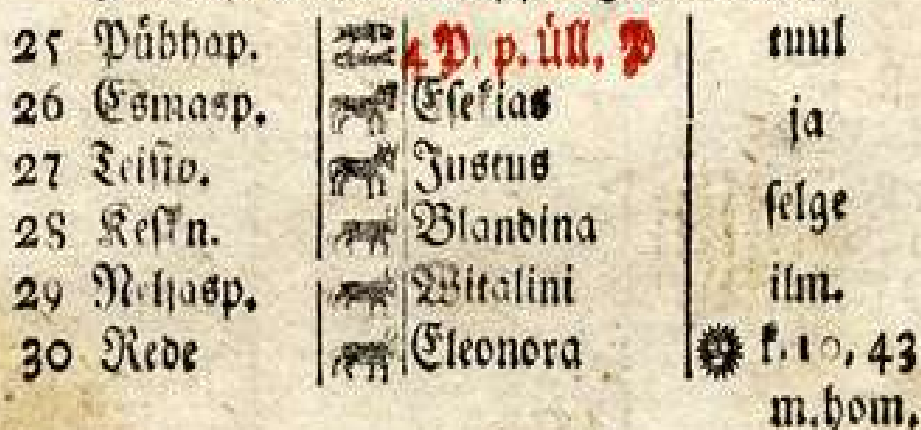 25 Pühhap. 4 P. p. üll. P tuul
26 Esmasp. Esekias ja
27 Teisip. Justus
28 Keskn. Blandina selge
29 Neljasp. Witalini ilm.
30 Rede Eleonora k. 10, 43
m. hom,